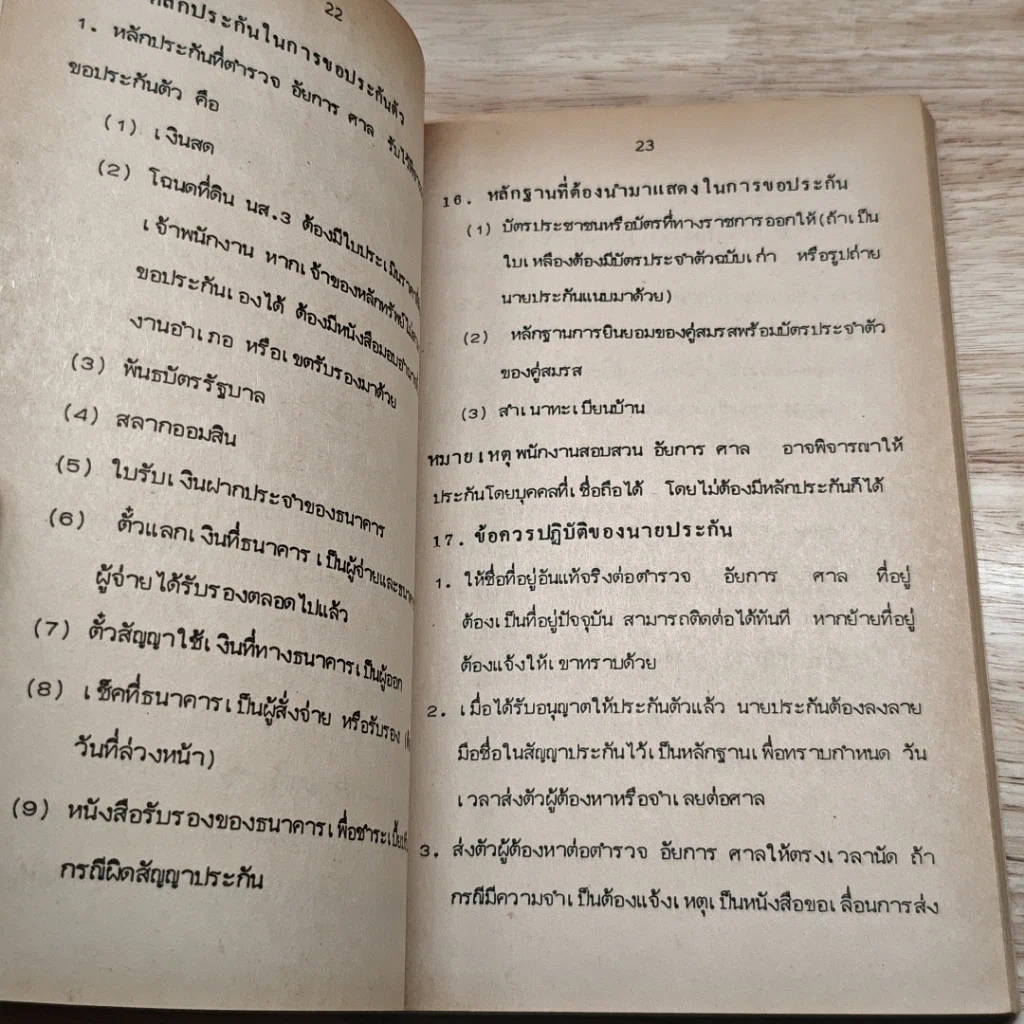 22
หลักประกันในการขอประกันตัว
1. หลักประกันที่ตำรวจ อัยการ ศาล
ขอประกันตัว คือ
(1) เงินสด
(2) โฉนดที่ดิน นส.3 ต้องมีใบประเมินราคา
เจ้าพนักงาน หากเจ้าของหลักทรัพย์
ขอประกันเองได้ ต้องมีหนังสือมอบอำนาจ
งานอำเภอ หรือเขตรับรองมาด้วย
(3) พันธบัตรรัฐบาล
(4) สลากออมสิน
(5) ใบรับเงินฝากประจำของธนาคาร
(6) ตั๋วแลกเงินที่ธนาคารเป็นผู้จ่ายและ
ผู้จ่ายได้รับรองตลอดไปแล้ว
(7) ตั๋วสัญญาใช้เงินที่ทางธนาคารเป็นผู้ออก
(8) เช็คที่ธนาคารเป็นผู้สั่งจ่าย หรือรับรอง
วันที่ล่วงหน้า)
(9) หนังสือรับรองของธนาคารเพื่อชำระ
กรณีผิดสัญญาประกัน
23
16. หลักฐานที่ต้องนำมาแสดงในการขอประกัน
(1) บัตรประชาชนหรือบัตรที่ทางราชการออกให้(ถ้าเป็น
ใบเหลืองต้องมีบัตรประจำตัวฉบับเก่า หรือรูปถ่าย
นายประกันแนบมาด้วย)
(2) หลักฐานการยินยอมของคู่สมรสพร้อมบัตรประจำตัว
ของคู่สมรส
(3) สำเนาทะเบียนบ้าน
หมายเหตุ พนักงานสอบสวน อัยการ ศาล อาจพิจารณาให้
ประกันโดยบุคคลที่เชื่อถือได้ โดยไม่ต้องมีหลักประกันก็ได้
17. ข้อควรปฏิบัติของนายประกัน
1. ให้ชื่อที่อยู่อันแท้จริงต่อตำรวจ อัยการ ศาล ที่อยู่
ต้องเป็นที่อยู่ปัจจุบัน สามารถติดต่อได้ทันที หากย้ายที่อยู่
ต้องแจ้งให้เขาทราบด้วย
2. เมื่อได้รับอนุญาตให้ประกันตัวแล้ว นายประกันต้องลงลาย
มือชื่อในสัญญาประกันไว้เป็นหลักฐานเพื่อทราบกำหนด วัน
เวลาส่งตัวผู้ต้องหาหรือจำเลยต่อศาล
3. ส่งตัวผู้ต้องหาต่อตำรวจ อัยการ ศาลให้ตรงเวลานัด ถ้า
กรณีมีความจำเป็นต้องแจ้งเหตุเป็นหนังสือขอเลื่อนการส่ง